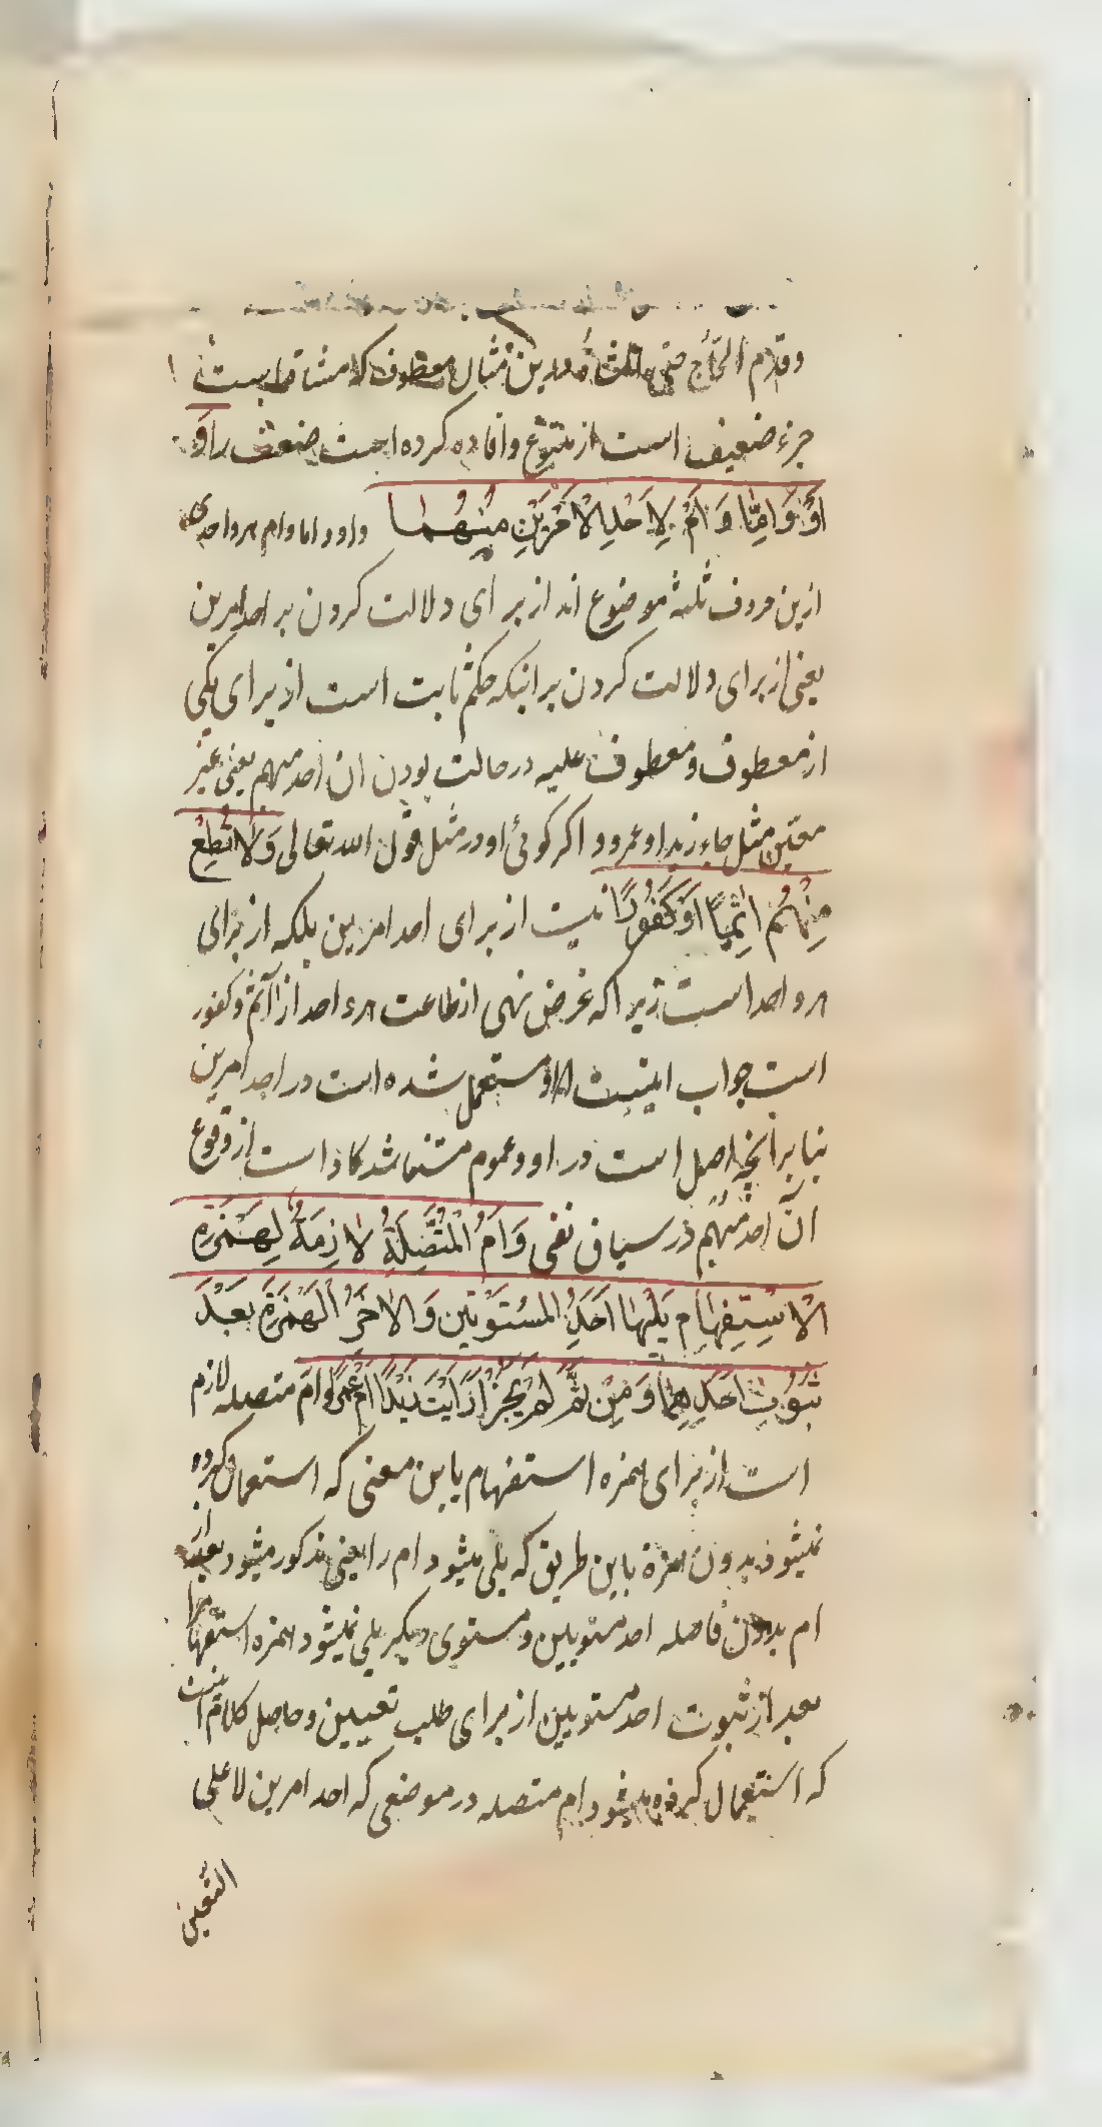 وقدم الحاج حتی المشاة درین مثال معطوف که مشاة است
جزء ضعیف است از متبوع و افاده کرده است ضعف را وَ
اَوْ وَ اِمَّا وَ اَمْ لِاَحَدِ الْاَمْرَیْنِ مُبْهَمًا واو و اما و ام هر واحدی
ازین حروف ثلثه موضوع اند از برای دلالت کردن بر احد امرین
یعنی از برای دلالت کردن بر اینکه حکم ثابت است از برای یکی
از معطوف و معطوف علیه در حالت بودن ان احد مبهم یعنی غیر
معین مثل جاء زید او عمرو و اکر کوئی او در مثل قول الله تعالی وَلَا تُطِعْ
مِنْهُمْ اٰثِمًا اَوْ كَفُورًا نیست از برای احد امرین بلکه از برای
هر واحد است زیرا که غرض نهی از طاعت هر واحد از آثم و کفور
است جواب اینست او مستعمل شده است در احد امرین
بنا بر آنچه اصل است در او و عموم مستفاد شده است از وقوع
آن احد مبهم در سیاق نفی وَ اَمْ الْمُتَّصِلَةُ لَازِمَةٌ لِهَمْزَةِ
الْاِسْتِفْهَامِ یَلِیهَا اَحَدُ الْمُسْتَوِیَیْنِ وَ الْاٰخَرُ الْهَمْزَةَ بَعْدَ
ثُبُوتِ اَحَدِهِمَا وَ مِنْ ثَمَّ لَمْ یَجُزْ اَرَاَیْتَ زَیْدًا اَمْ عَمْرًوا و ام متصله لازم
است از برای همزه استفهام باین معنی که استعمال کرده
نمیشود بدون همزه باین طریق که یلی میشود ام را یعنی مذکور میشود بعد از
ام بدون فاصله احد مستویین و مستوی دیکر یلی میشود همزه استفهام را
بعد از ثبوت احد مستویین از برای طلب تعیین و حاصل کلام اینست
که استعمال کرده میشود ام متصله در موضعی که احد امرین لا علی
التعیین